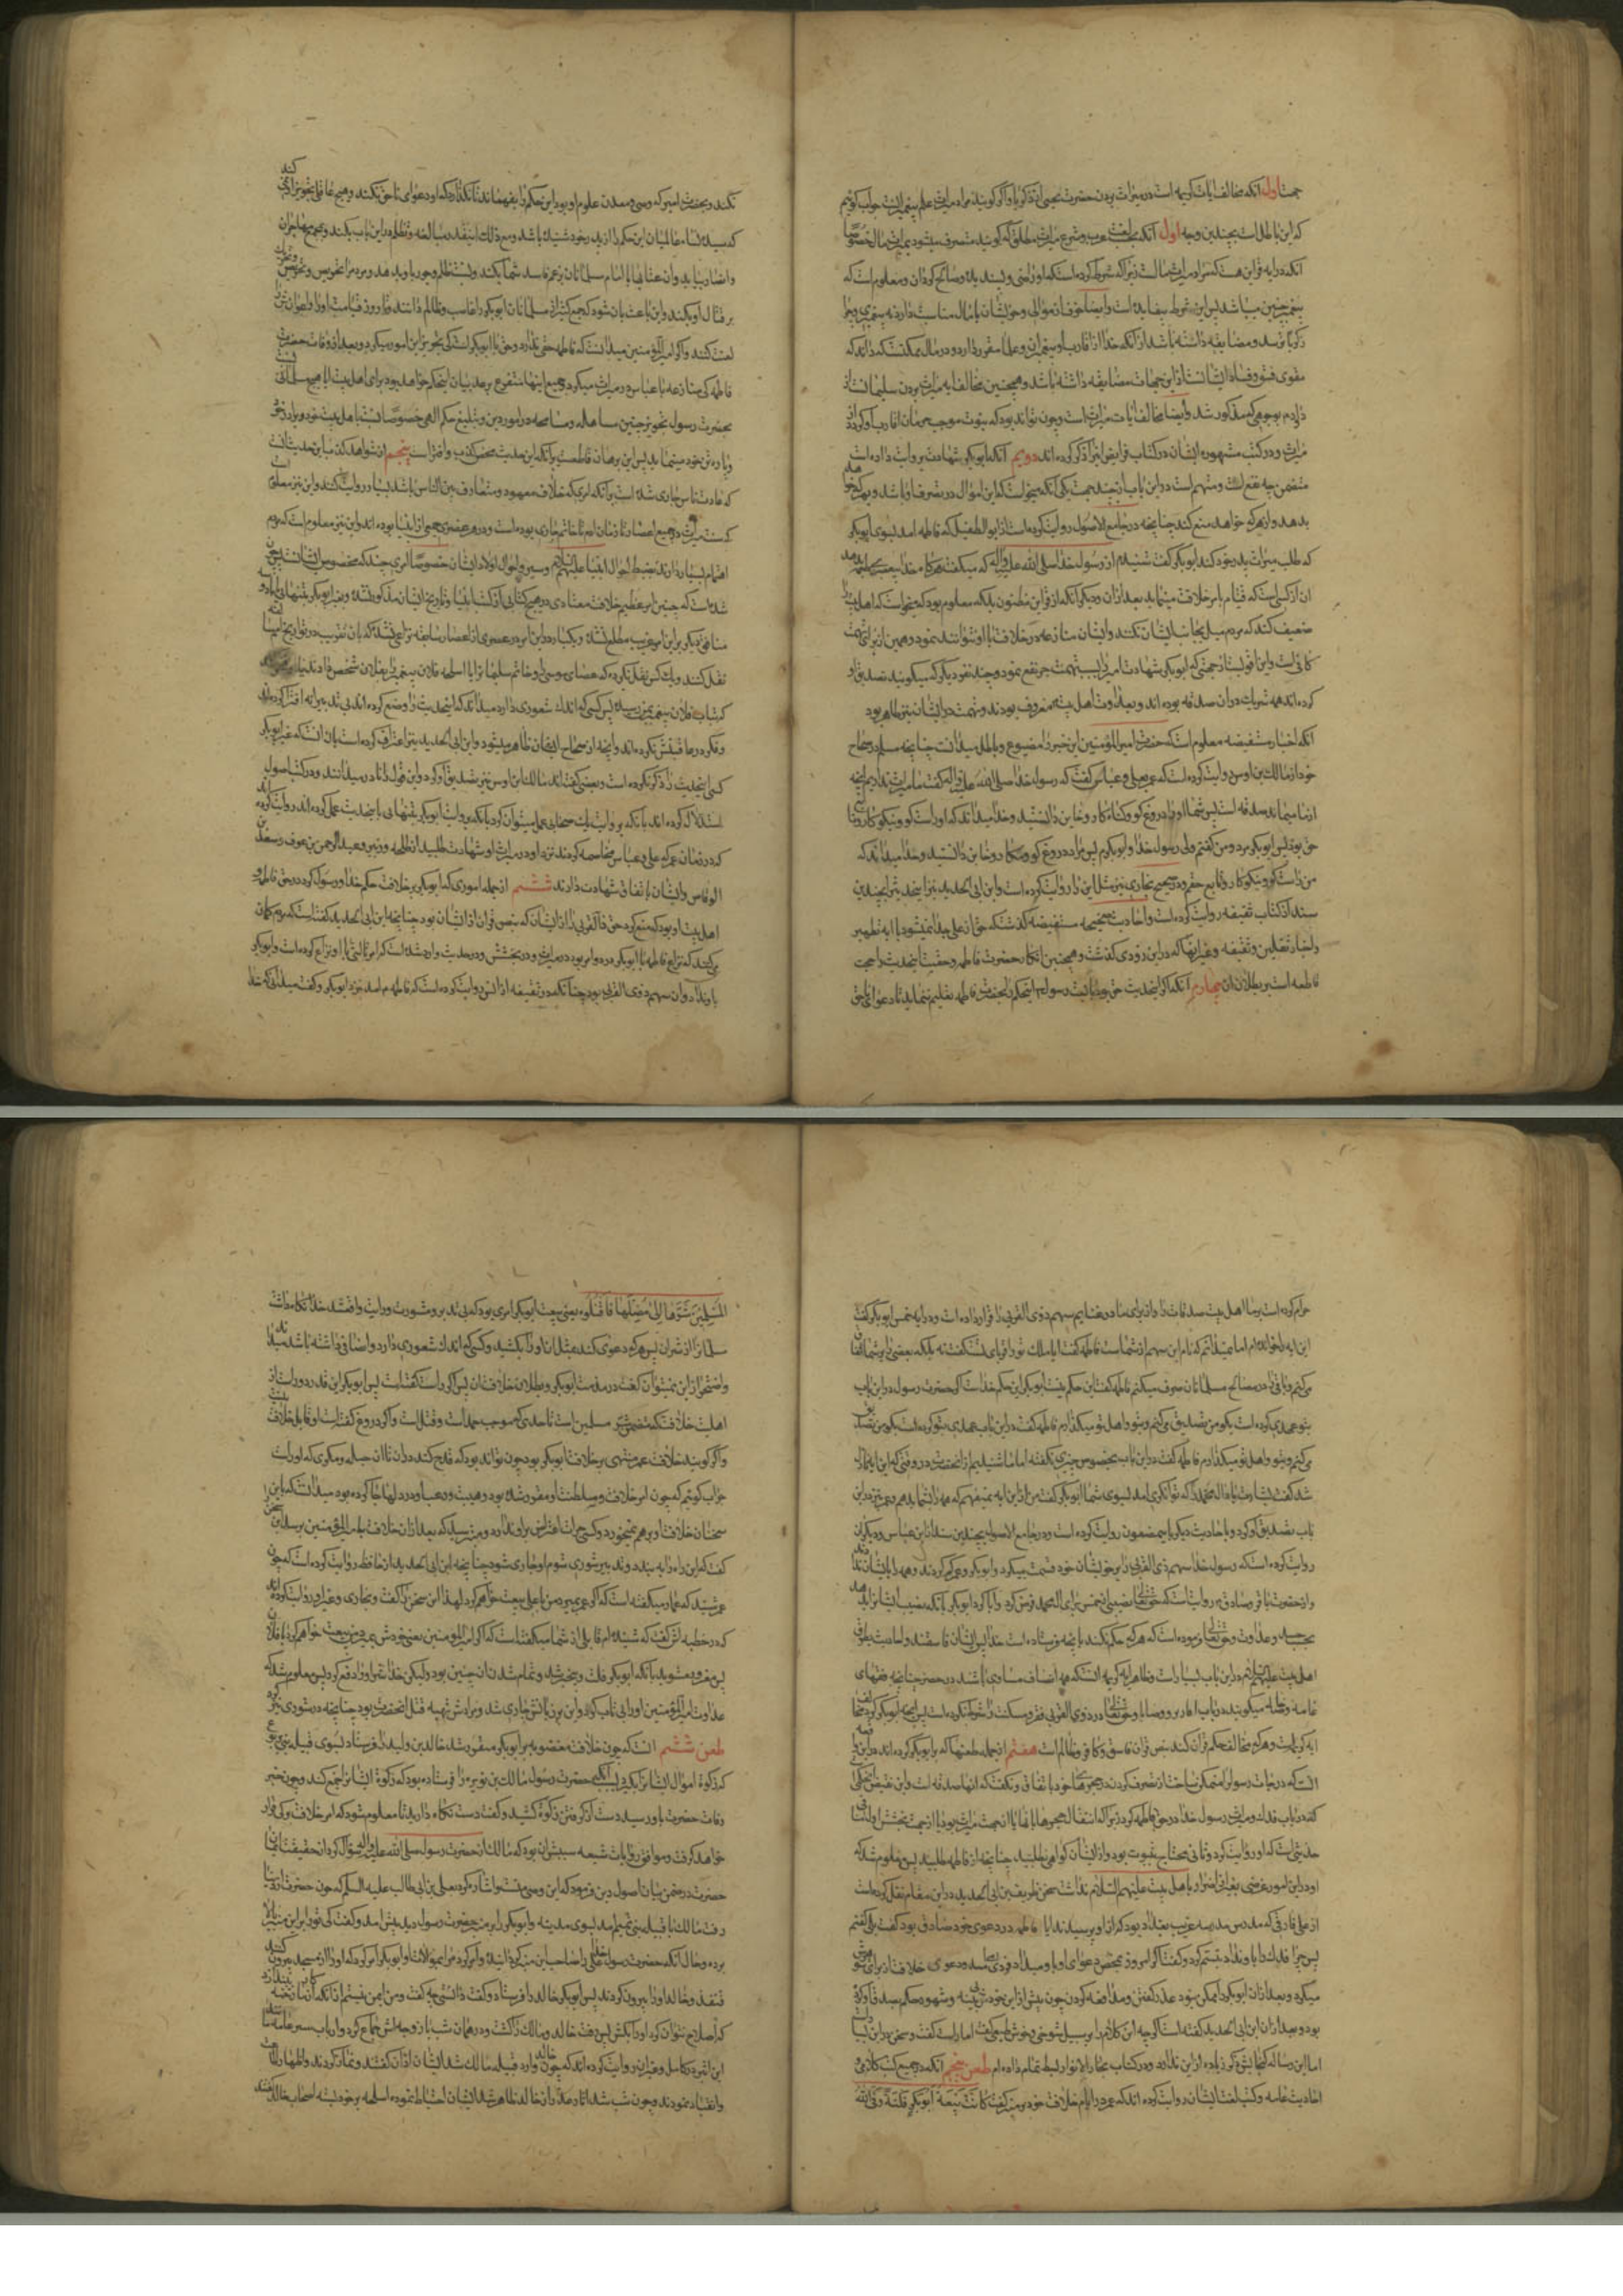 جهت اول آنکه مخالف آیات کریمه است در میراث بردن حضرت یحیی از زکریا و اگر گویند مراد میراث علم پیغمبریست جواب گوئیم
که این باطل است بچندین وجه اول آنکه بحسب لغت و عرف و شرع میراث مطلق که گویند منصرف میشود بمیراث مال خصوصا
آنکه در آیه قراین هست که مراد میراث مالست زیرا که شرط کرده است که او راضی و پسندیده و صالح گردان و معلوم است که
پیغمبر چنین میباشد پس این شرط بیفایده است و ایضا خوف از موالی و خویشان با مال مناسبت دارد نه پیغمبری
زکریا ترسد و مضایقه داشته باشد از آنکه خدا از اقارب او پیغمبران و علما مقرر دارد و در مال ممکنست که داند که
مقوی فسق و فساد ایشانست از این جهات مضایقه داشته باشد و همچنین مخالف آیه میراث بردن سلیمانست از
داود بوجهی که مذکور شد و ایضا مخالف آیات میراث است و چون تواند بود که نبوت موجب حرمان اقارب او گردد از
میراث و در کتب مشهوره ایشان در کتاب فرایض این را ذکر کرده اند دویم آنکه ابوبکر شهادت بر روایت داده است
متضمن چه نفع است و متهم است در این باب از چند جهت یکی آنکه میخواست که این اموال در تصرف او باشد و بهر که خواهد
بدهد و از هر که خواهد منع کند چنانچه در جامع الاصول روایت کرده است از ابوالطفیل که فاطمه آمد بسوی ابوبکر
که طلب میراث پدر خود کند ابوبکر گفت شنیدم از رسول خدا صلی الله علیه و آله که میگفت هرگاه خدا پیغمبری را طعمه دهد
آن از کسی است که قیام بامر خلافت مینماید بعد از آن و دیگر آنکه از قراین مظنون بلکه معلوم بود که میخواست که اهل بیت را
ضعیف کند که مردم میل بجانب ایشان نکنند و ایشان منازعه در خلافت با او نتوانند نمود و همین از برای تهمت
کافی است و این اقوایست از جهتی که ابوبکر شهادت امیر را بسبب تهمت جر نفع ننمود و چند نفر دیگر که میگویند تصدیق او
کرده اند همه شریک در آن صدقه بوده اند و بعداوت اهل بیت معروف بودند و تهمت در ایشان نیز ظاهر بود
آنکه اخبار مستفیضه معلوم است که حضرت امیرالمؤمنین این خبر را موضوع و باطل میدانست چنانچه مسلم در صحاح
خود از مالک بن اوس روایت کرده است که عمر بعلی و عباس گفت که رسول خدا صلی الله علیه و آله گفت ما میراث نداریم آنچه
از ما میماند صدقه است پس شما او را دروغ گو و گناه کار و خاین دانستید و خدا میداند که او راست گو و نیکو کار و تابع
حق بود پس ابوبکر مرد و من گفتم ولی رسول خدا و ابوبکرم پس مرا دروغ گو و مکار و خاین دانستید و خدا میداند که
من راست گو و نیکو کار و تابع حقم و در صحیح بخاری نیز مثل این را روایت کرده است و ابن ابی الحدید نیز این حدیث را بچندین
سند از کتاب سقیفه روایت کرده است و احادیث صحیحه مستفیضه گذشت که حق از علی جدا نمیشود با آیه تطهیر
و اخبار ثقلین و سفینه و غیر اینها که در این زودی گذشت و همچنین انکار حضرت فاطمه و حقیت این حدیث را حجت
قاطعه است بر بطلان آن چهارم آنکه اگر این حدیث حق بود بایست رسول این حکم را بحضرت فاطمه تعلیم نماید تا دعوای ناحق
نکند و بحضرت امیر که وصی و معدن علوم او بود این حکم را بفهماند تا نگذارد که او دعوای ناحق بکند و هیچ عاقل تجویز این نمیکند
که سیده نساء عالمیان این حکم را از پدر خود شنیده باشد و مع ذلک اینقدر مبالغه و تظلم در این باب بکند و بمجمع مهاجران
و انصار بیاید و آن عتابها با امام مسلمانان بزعم فاسد شما بکند و نسبت ظلم و جور باو بدهد و مردم را تحریص و تحریک
بر قتال او بکند و این باعث آن شود که جمع کثیر از مسلمانان ابوبکر را غاصب و ظالم دانند و تا روز قیامت او را و اعوان او را
لعنت کنند و اگر امیرالمؤمنین میدانست که فاطمه حقی ندارد و حق با ابوبکر است کی تجویز این امور میکرد و بعد از وفات حضرت
فاطمه کی منازعه با عباس در میراث میکرد جمیع اینها متفرع بر عدم بیان این حکم خواهد بود برای اهل بیت آیا هیچ مسلمانی
بحضرت رسول تجویز چنین مساهله و مسامحه در امور دین و تبلیغ حکم الهی خصوصا نسبت با اهل بیت خود و برادر خود
و پاره تن خود مینماید پس این برهان قاطعست برآنکه این حدیث محض کذب و افتراست پنجم از شواهد کذب این حدیث آنست
که عادت ناس جاری شده است بر آنکه امری که خلاف معهود و متعارف بین الناس باشد بسیار روایت کنند و این نیز معلوم
که سنت میراث در جمیع اعصار تا زمان آدم تا خاتم جاری بوده است و در هر عصری جمعی از انبیا بوده اند و این نیز معلوم است که مردم
اهتمام بسیار دارند بضبط احوال انبیا علیهم السلام و سیر و احوال اولاد ایشان خصوصا امری چند که مخصوص ایشانست پس چون
شده است که چنین امر عظیم خلاف معتادی در هیچ کتابی از کتب انبیا و تاریخ ایشان مذکور نشده و بغیر ابوبکر بتنهائی
نقل کنند و یک کس نقل نکرده که عصای موسی و خاتم سلیمان را یا اسلحه فلان پیغمبر را بفلان شخص دادند
وفکر درعاقبتش نکرده اند و آنچه از صحاح ایشان ظاهر میشود و ابن ابی الحدید نیز اعتراف کرده است بآن آنست که غیر ابوبکر
کسی این حدیث را ذکر نکرده است و بعضی گفته اند مالک بن اوس نیز تصدیق او کرد و این قول را نادر میدانند و در کتب اصول
استدلال کرده اند بآنکه بر روایت یک صحابی عمل میتوان کرد بآنکه بروایت ابوبکر بتنهائی باین حدیث عمل کرده اند روایت کرده اند
که در زمان عمر که علی و عباس مخاصمه کردند نزد او در میراث او شهادت طلبید از طلحه و زبیر و عبدالرحمن بن عوف و سعد بن
ابی وقاص و ایشان باتفاق شهادت دادند ششم از جمله اموری که ابوبکر بر خلاف حکم خدا و رسول کرد در حق فاطمه و
اهل بیت او بود که منع کرد حق ذا القربی را از ایشان که بنص قرآن از ایشان بود چنانچه ابن ابی الحدید گفته است که مردم گمان
میکنند که نزاع فاطمه با ابوبکر در دو امر بود در میراث و در بخشش و در حدیث وارد شده است که در امر ثالثی با او نزاع کرده است و ابوبکر
باو نداد و آن سهم ذوی القربی بود چنانکه در سقیفه از انس روایت کرده است که فاطمه ع آمد نزد ابوبکر و گفت میدانی که خدا
حرام کرده است بر ما اهل بیت صدقات را و از برای ما در غنایم سهم ذوی القربی را قرار داده است و در آیه خمس ابوبکر گفت
این آیه را خوانده ام اما نمیدانم که تمام این سهم از شماست فاطمه گفت آیا ملک تو و اقربای تست گفت نه بلکه بعضی را بر شما انفاق
میکنم و باقی را در مصالح مسلمانان صرف میکنم فاطمه گفت این حکم نیست ابوبکر این حکم خداست اگر حضرت رسول در این باب
بتو عهدی کرده است بگو من تصدیق میکنم و بتو و اهل تو میگذارم فاطمه گفت در این باب عهدی بتو کرده است بگو من تصدیق
میکنم و بتو و اهل تو میگذارم فاطمه گفت در این باب بخصوص چیزی نگفته اما شنیدم از آنحضرت در وقتی که این آیه نازل
شد گفت بشارت باد آل محمد را که توانگری آمد بسوی شما ابوبکر گفت من از این آیه نمیفهمم که همه را بشما بدهم و عمر نیز در این
باب تصدیق او کرد و باحادیث دیگر باین مضمون روایت کرده است و در جامع الاصول بچندین سند از ابن عباس و دیگران
روایت کرده است که رسول خدا سهم ذی القربی را بر خویشان خود قسمت میکرد و ابوبکر و عمر کم کردند و همه را بایشان ندادند
بجهت حسد و عداوت و حق تعالی فرموده است که هر که حکم نکند بآنچه خدا فرستاده است پس ایشان فاسقند و احادیث بطرق
اهل بیت علیهم السلام در این باب بسیار است و ظاهر آیه کریمه آنست که سهم اصناف مساوی باشد در حصر چنانچه فقهای
آیه کریمه است و هر که مخالف حکم قرآن کند بنص قرآن فاسق و کافر و ظالم است هفتم از جمله طعنها که بر ابوبکر کرده اند در این باب
آنست که زوجات رسول را متمکن ساخت از تصرف کردن در حجره های خود باتفاق و نگفت که آنها صدقه است و این نقیض آن حکمی
که در باب فدک و میراث رسول خدا در حق فاطمه کرد زیرا که انتقال حجره ها بآنها یا از جهت میراث بود یا از جهت بخشش اول منافی
حدیثی است که او روایت کرد و ثانی محتاج بثبوت بود و از ایشان گواهی نطلبید چنانچه از فاطمه طلبید پس معلوم شد که
او در این امور غرضی بغیر از اضرار باهل بیت علیهم السلام نداشت بعضی از طریفین ابن ابی الحدید در این مقام نقل کرده است
از علی فارقی که مدرس مدرسه غربیه بغداد بود که از او پرسیدند آیا فاطمه در دعوی خود صادق بود گفت بلی گفتم
پس چرا فدک را باو نداد تبسم کرد و گفت اگر امروز بمحض دعوای او باو میداد فردا میآمد و دعوی خلافت از برای شوهرش
میکرد و بعد از آن ابوبکر را ممکن نبود عذر گفتن و مدافعه کردن چون پیش از این خودش بی بینه و شهود حکم بصدق او کرده
بود و بعد از آن ابن ابی الحدید گفته است اگر چه این کلام را بر سبیل شوخی و خوش طبعی گفت اما راست گفت و سخن در این باب بسیار است
اما این رساله گنجایش ذکر زیاده از این ندارد و در کتاب بحار الانوار بسط تمام داده ام طعن پنجم آنکه در جمیع کتب کلامی و
احادیث عامه و کتب لغت ایشان روایت کرده اند که عمر در ایام خلافت خود بر منبر گفت کانت بیعة ابوبکر فلتة وقی الله
المسلمین شرها فمن عاد الی مثلها فاقتلوه یعنی بیعت ابوبکر امری بود که بی تدبر و مشورت و رویت واقع شد خدا نگاه داشت
مسلمانان را از شر آن پس هر که دعوی کند بمثل آن او را بکشید و کسی که اندک شعوری دارد و انصافی داشته باشد میداند
واضحتر از این نمیتوان گفت در مذمت ابوبکر و بطلان خلافت آن پس اگر راست گفته است پس ابوبکر این قدر دور است از
اهلیت خلافت که متضمن شر مسلمین است تا حدی که موجب جد است و قتل است و اگر دروغ گفته است او قابل خلافت نیست
و اگر گویند خلافت عمر منتهی بر خلافت ابوبکر بود چون تواند بود که قدح کند در آن تا آن حیله و مکری که او راست
جواب گوئیم که چون امر خلافت و سلطنت او مقرر شده بود و هیبت و رعب او در دلها جا کرده بود میدانست که باین
سخنان خلافت او برهم نمیخورد و کسی جرأت اعتراض بر او ندارد و میترسید که بعد از آن خلافت بامیرالمؤمنین برسد این سخن را
گفت که این راه را به بندد و تدبیر شوری شوم او جاری شود چنانچه ابن ابی الحدید از حافظ روایت کرده است که چون
عمر شنید که عمار میگفته است که اگر عمر بمیرد من با علی بیعت خواهم کرد لهذا این سخن را گفت و بخاری و غیر او روایت کرده اند
که در خطبه اش گفت که شنیده ام قابلی از شما میگفته است که اگر امیرالمؤمنین یعنی خودش بمیرد من بیعت خواهم کرد با فلان
پس مغرور مشوید بآنکه ابوبکر فلت و بیخبر شد و تمام شد آن چنین بود ولیکن خدا شر او را دفع کرد پس معلوم شد که
عداوت امیرالمؤمنین او را بی تاب کرد و این بر زبانش جاری شد و مرادش تهیه قتل آنحضرت بود چنانچه در شوری نیز کرد
طعن ششم آنست که چون خلافت مغصوبه بر ابوبکر مستقر شد خالد بن ولید را فرستاد بسوی قبیله بنی یربوع
که زکوة اموال ایشان را بگیرد بسبب آنکه حضرت رسول مالک بن نویره را فرستاده بود که زکوة ایشان را جمع کند و چون خبر
وفات حضرت باو رسید دست از گرفتن زکوة کشید و گفت دست نگاه دارید تا معلوم شود که امر خلافت بر کی قرار
خواهد گرفت و موافق روایات شیعه سببش آن بود که مالک از حضرت رسول صلی الله علیه و آله سؤال کرد از حقیقت ایمان
حضرت در ضمن بیان اصول دین فرمود که این وصی منست و اشاره کرد بعلی بن ابی طالب علیه السلام چون حضرت از دنیا
رفت مالک با قبیله بنی تمیم آمد بسوی مدینه و ابوبکر را بر منبر حضرت رسول دید پیش آمد و گفت کی ترا بر این منبر بالا
برده و حال آنکه حضرت رسول علی را صاحب این منبر گردانیده و امر کرد مرا بموالات او ابوبکر امر کرد که او را از مسجد بیرون کنند
قنفذ و خالد او را بیرون کردند پس ابوبکر خالد را فرستاد و گفت دانستی چه گفت و من ایمن نیستم از آنکه در کار ما رخنه
که اصلاح نتوان کرد او را بکش پس رفت خالد و مالک را کشت و در همان شب با زوجه اش جماع کرد و ارباب سیر عامه مانند
ابن اثیر در کامل و غیر آن روایت کرده اند که چون خالد وارد قبیله مالک شد ایشان اذان گفتند و نماز کردند و اظهار
وانقیاد نمودند و چون شب شد آثار غدر از خالد ظاهر شد ایشان احتیاط نموده اسلحه بر خود بسته اصحاب خالد گفتند